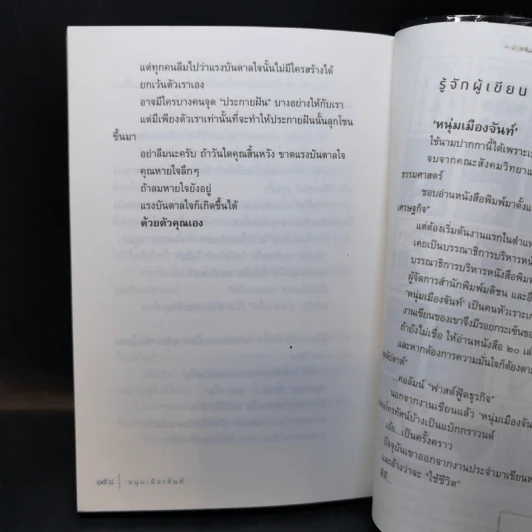 แต่ทุกคนลืมไปว่าแรงบันดาลใจนั้นไม่มีใครสร้างได้
ยกเว้นตัวเราเอง
อาจมีใครบางคนจุด “ประกายฝัน” บางอย่างให้กับเรา
แต่มีเพียงตัวเราเท่านั้นที่จะทำให้ประกายฝันนั้นลุกโชน
ขึ้นมา
อย่าลืมนะครับ ถ้าวันใดคุณสิ้นหวัง ขาดแรงบันดาลใจ
คุณหายใจลึกๆ
ถ้าลมหายใจยังอยู่
แรงบันดาลใจก็เกิดขึ้นได้
ด้วยตัวคุณเอง
หนุ่มเมืองจันท์
รู้จักผู้เขียน
‘หนุ่มเมืองจันท์’
ใช้นามปากกานี้ได้เพราะเป็
จบจากคณะสังคมวิทยาแ
ธรรมศาสตร์
ชอบอ่านหนังสือพิมพ์มาตั้งแ
เศรษฐกิจ”
แต่ต้องเริ่มต้นงานแรกในตำแ
เคยเป็นบรรณาธิการบริหารหนั
บรรณาธิการบริหารหนังสือพิม
ผู้จัดการสำนักพิมพ์มติชน และอี
‘หนุ่มเมืองจันท์’ เป็นคนหัวเราะเก
งานเขียนของเขาจึงมีรอยกระเซ็นขอ
ถ้ายังไม่เชื่อ ให้อ่านหนังสือ ๒๐ เล่
และหากต้องการความมั่นใจก็ต้องตา
คอลัมน์ “ฟาสต์ฟู้ดธุรกิจ”
นอกจากงานเขียนแล้ว ‘หนุ่มเมืองจัน
โทรทัศน์บ้างเป็นแบ็กกราวนด์
เอ้ย...เป็นครั้งคราว
ปัจจุบันเขาออกจากงานประจำมาเขียนห
และอ้างว่าจะ “ใช้ชีวิต”